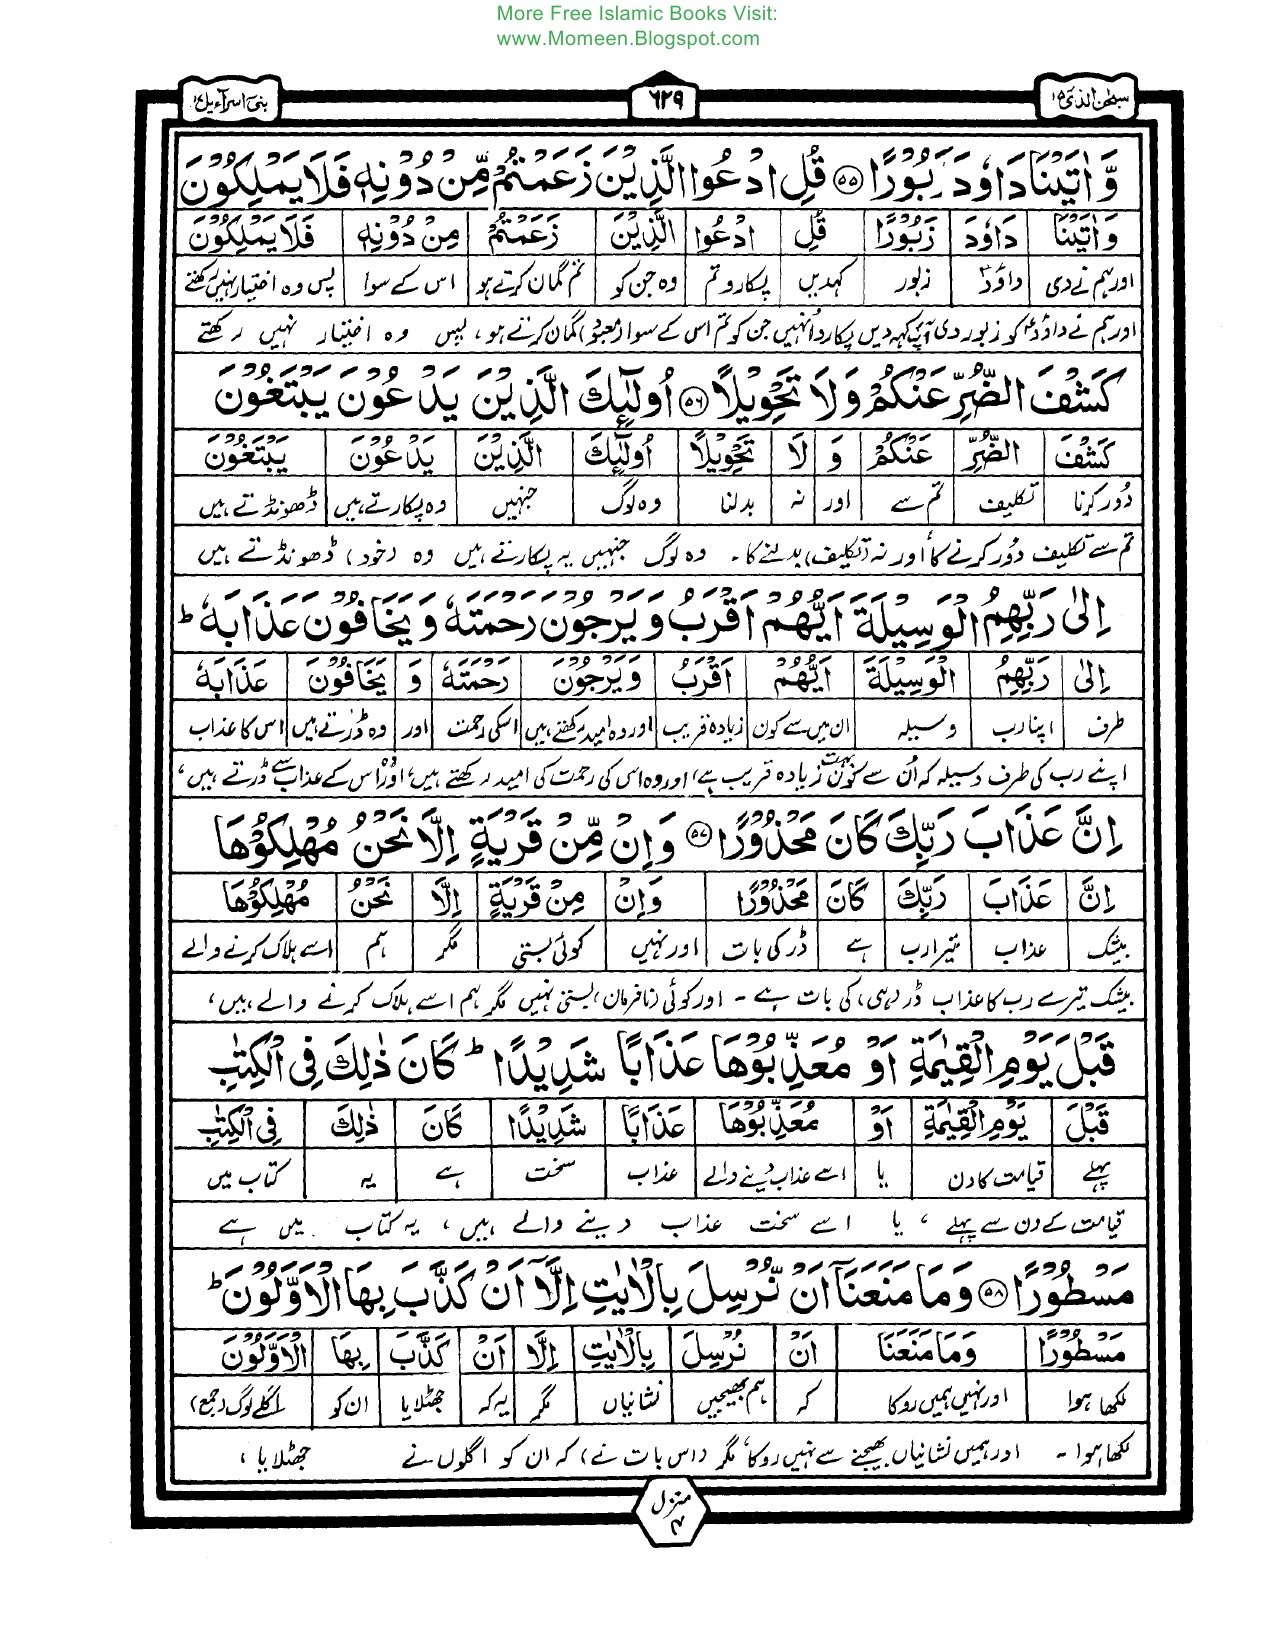 More Free Islamic Books Visit:
www.Momeen.Blogspot.com
سبحٰن الذی ۱۵ ۶۲۹ بنیٓ اسرآءیل ۱۷
وَّاٰتَيْنَا دَاوٗدَ زَبُوْرًا ۵۵ قُلِ ادْعُوا الَّذِيْنَ زَعَمْتُمْ مِّنْ دُوْنِهٖ فَلَا يَمْلِكُوْنَ
وَّاٰتَيْنَا دَاوٗدَ زَبُوْرًا قُلِ ادْعُوا الَّذِيْنَ زَعَمْتُمْ مِنْ دُوْنِهٖ فَلَا يَمْلِكُوْنَ
اور ہم نے دی داؤدؑ زبور کہدیں پکارو تم وہ جن کو تم گمان کرتے ہو اس کے سوا پس وہ اختیار نہیں رکھتے
اور ہم نے داؤدؑ کو زبور دی آپؐ کہہ دیں پکارو انہیں جن کو تم اس کے سوا (معبود) گمان کرتے ہو، پس وہ اختیار نہیں رکھتے
كَشْفَ الضُّرِّ عَنْكُمْ وَلَا تَحْوِيْلًا ۵۶ اُولٰٓئِكَ الَّذِيْنَ يَدْعُوْنَ يَبْتَغُوْنَ
كَشْفَ الضُّرِّ عَنْكُمْ وَ لَا تَحْوِيْلًا اُولٰٓئِكَ الَّذِيْنَ يَدْعُوْنَ يَبْتَغُوْنَ
دُور کرنا تکلیف تم سے اور نہ بدلنا وہ لوگ جنہیں وہ پکارتے ہیں ڈھونڈتے ہیں
تم سے تکلیف دُور کرنے کا اور نہ (تکلیف) بدلنے کا۔ وہ لوگ جنہیں یہ پکارتے ہیں وہ (خود) ڈھونڈتے ہیں
اِلٰى رَبِّهِمُ الْوَسِيْلَةَ اَيُّهُمْ اَقْرَبُ وَيَرْجُوْنَ رَحْمَتَهٗ وَيَخَافُوْنَ عَذَابَهٗ ؕ
اِلٰى رَبِّهِمُ الْوَسِيْلَةَ اَيُّهُمْ اَقْرَبُ وَيَرْجُوْنَ رَحْمَتَهٗ وَ يَخَافُوْنَ عَذَابَهٗ
طرف اپنا رب وسیلہ ان میں سے کون زیادہ قریب اور وہ امید رکھتے ہیں اسکی رحمت اور وہ ڈرتے ہیں اس کا عذاب
اپنے رب کی طرف وسیلہ کہ اُن سے کون بہت زیادہ قریب ہے، اور وہ اس کی رحمت کی امید رکھتے ہیں، اور اس کے عذاب سے ڈرتے ہیں،
اِنَّ عَذَابَ رَبِّكَ كَانَ مَحْذُوْرًا ۵۷ وَاِنْ مِّنْ قَرْيَةٍ اِلَّا نَحْنُ مُهْلِكُوْهَا
اِنَّ عَذَابَ رَبِّكَ كَانَ مَحْذُوْرًا وَاِنْ مِنْ قَرْيَةٍ اِلَّا نَحْنُ مُهْلِكُوْهَا
بیشک عذاب تیرا رب ہے ڈر کی بات اور نہیں کوئی بستی مگر ہم اسے ہلاک کرنے والے
بیشک تیرے رب کا عذاب ڈر (ہی) کی بات ہے - اور کوئی (نافرمان) بستی نہیں مگر ہم اسے ہلاک کرنے والے ہیں،
قَبْلَ يَوْمِ الْقِيٰمَةِ اَوْ مُعَذِّبُوْهَا عَذَابًا شَدِيْدًا ؕ كَانَ ذٰلِكَ فِى الْكِتٰبِ
قَبْلَ يَوْمِ الْقِيٰمَةِ اَوْ مُعَذِّبُوْهَا عَذَابًا شَدِيْدًا كَانَ ذٰلِكَ فِى الْكِتٰبِ
پہلے قیامت کا دن یا اسے عذاب دینے والے عذاب سخت ہے یہ کتاب میں
قیامت کے دن سے پہلے، یا اسے سخت عذاب دینے والے ہیں، یہ کتاب میں ہے
مَسْطُوْرًا ۵۸ وَمَا مَنَعَنَآ اَنْ نُّرْسِلَ بِالْاٰيٰتِ اِلَّآ اَنْ كَذَّبَ بِهَا الْاَوَّلُوْنَ ؕ
مَسْطُوْرًا وَمَا مَنَعَنَا اَنْ نُرْسِلَ بِالْاٰيٰتِ اِلَّا اَنْ كَذَّبَ بِهَا الْاَوَّلُوْنَ
لکھا ہوا اور نہیں ہمیں روکا کہ ہم بھیجیں نشانیاں مگر یہ کہ جھٹلایا ان کو اگلے لوگ (جمع)
لکھا ہوا - اور ہمیں نشانیاں بھیجنے سے نہیں روکا، مگر (اس بات نے) کہ ان کو اگلوں نے جھٹلایا،
منزل ۴